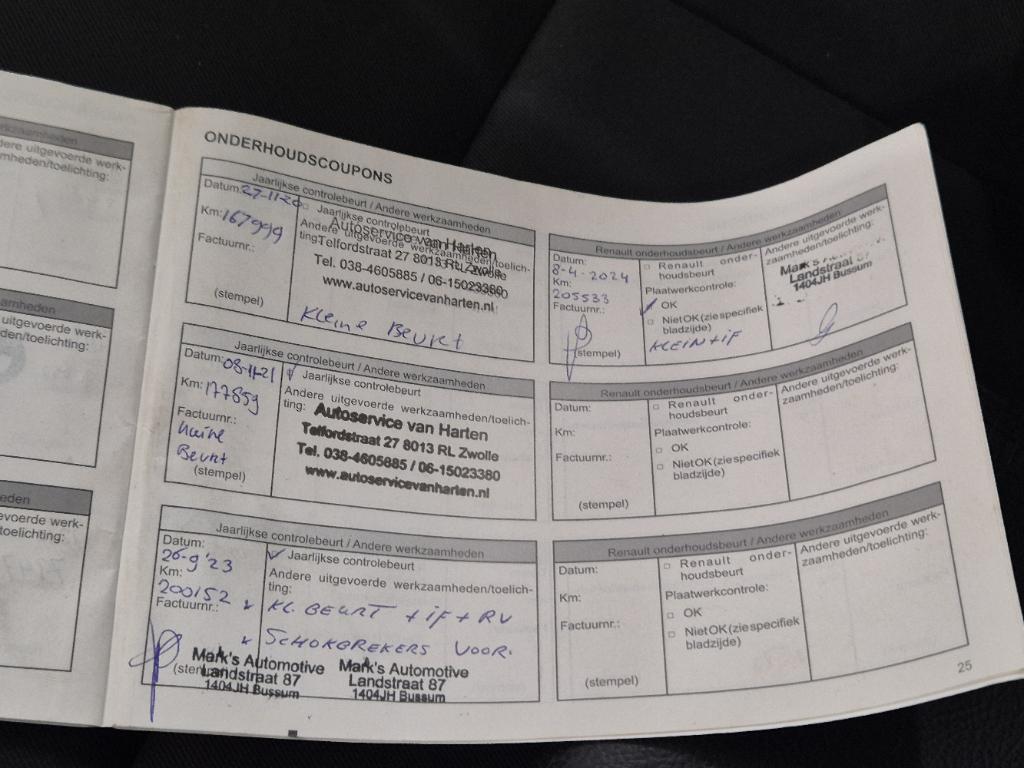 ONDERHOUDSCOUPONS
Jaarlijkse controlebeurt / Andere werkzaamheden
Datum: 27-11-20
Jaarlijkse controlebeurt
Km: 167999
Andere uitgevoerde werkzaamheden/toelich-
ting:
Factuurnr.:
(stempel)
Autoservice van Harten
Telfordstraat 27 8013 RL Zwolle
Tel. 038-4605885 / 06-15023380
www.autoservicevanharten.nl
Kleine Beurt
Jaarlijkse controlebeurt / Andere werkzaamheden
Datum: 08-11-21
Jaarlijkse controlebeurt
Km: 177859
Andere uitgevoerde werkzaamheden/toelich-
ting:
Factuurnr.:
Beurt
(stempel)
Autoservice van Harten
Telfordstraat 27 8013 RL Zwolle
Tel. 038-4605885 / 06-15023380
www.autoservicevanharten.nl
Jaarlijkse controlebeurt / Andere werkzaamheden
Datum:
26-9'23
Jaarlijkse controlebeurt
Km:
200152
Andere uitgevoerde werkzaamheden/toelich-
ting:
Factuurnr.:
KL. BEURT + iF + RV
SCHOKBREKERS VOOR.
(stempel)
Mark's Automotive
Landstraat 87
1404JH Bussum
Mark's Automotive
Landstraat 87
1404JH Bussum
Renault onderhoudsbeurt / Andere werkzaamheden
Datum:
8-4-2024
Km:
205533
Factuurnr.:
(stempel)
Renault onder-
houdsbeurt
Plaatwerkcontrole:
OK
Niet OK (zie specifiek
bladzijde)
KLEIN + iF
Andere uitgevoerde werk-
zaamheden/toelichting:
Landstraat 87
1404JH Bussum
Renault onderhoudsbeurt / Andere werkzaamheden
Datum:
Km:
Factuurnr.:
(stempel)
Renault onder-
houdsbeurt
Plaatwerkcontrole:
OK
Niet OK (zie specifiek
bladzijde)
Andere uitgevoerde werk-
zaamheden/toelichting:
Renault onderhoudsbeurt / Andere werkzaamheden
Datum:
Km:
Factuurnr.:
(stempel)
Renault onder-
houdsbeurt
Plaatwerkcontrole:
OK
Niet OK (zie specifiek
bladzijde)
Andere uitgevoerde werk-
zaamheden/toelichting:
25